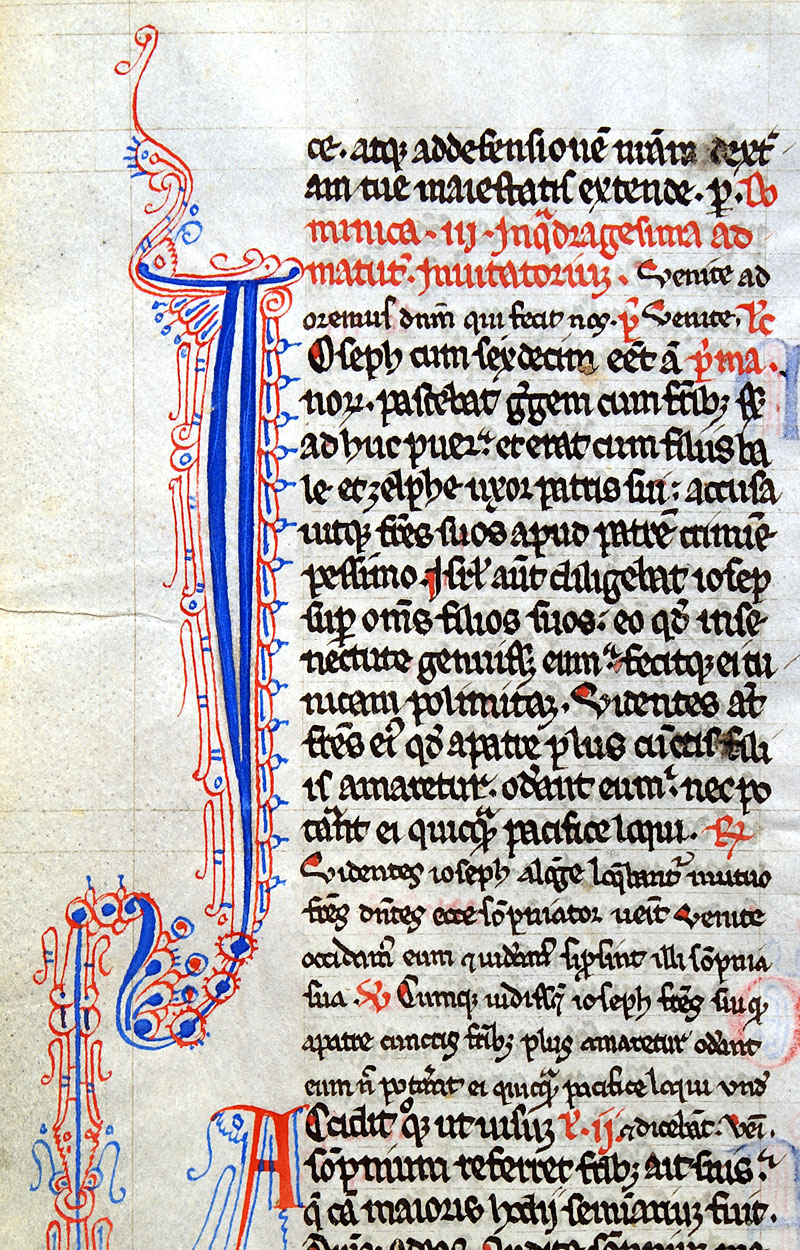 ce. atq; addefensionē nr̄am dext
am tue maiestatis extende. p̲. Do
minica. iii. Inq̄dragesima ad
matut̄. Inuitatoriuꝫ. Venite ad
oremus dn̄m qui fecit nos. p̄. Venite. R̄c
Joseph cum sexdecim eēt ā p̄ma.
norꝝ. pascebat g̊gem cum fr̄ibꝫ
ad huc puer. et erat cum filiis ba
le et zelphe uxor patris sui: accusa
uitqꝫ fr̄es suos apud patrē crimīe
pessimo. Isrl̄ aūt diligebat iosep
sup̲ om̄s filios suos: eo qd̄ inse
nectute genuisꝫ eum. fecitqꝫ ei tu
nicam polimitaꝫ. Videntes at̄
fr̄es eiꝰ qd̄ apatre plus cūctis fili
is amaretur. od̄ant eum: nec po
t̄ant ei quicq̄ꝫ pacifice loqui. R̄
Videntes ioseph alōge loq̄bantᷣ mutuo
fr̄es dn̄tes ecce sōpniator ueīt Venite
occidamꝰ eum ⁊ uideamꝰ si ꝓsint illi sōpnia
sua. V Cumqꝫ uidissꝫ ioseph fr̄es sui qꝫ
apatre cunctis fr̄ibꝫ plus amaretur od̄ant
eum n̄ pot̄ant ei quicq̄ꝫ pacifice loqui und̄
Accidit qꝫ ut uisuꝫ R. ii. ⁊ dicebāt. Vēi.
sōpnium referret fr̄ibꝫ ait suis.
q̄ cā maioris hodii seminariuꝫ fuit.